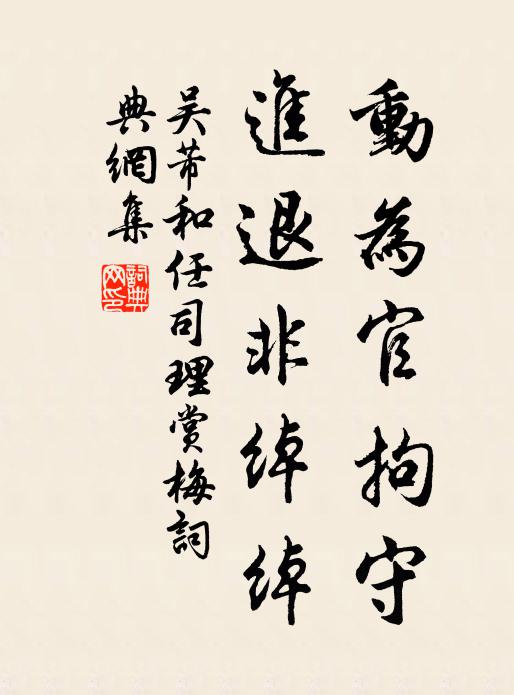 動為官拘守
進退非綽綽
吳芾和任司理賞梅詞
典網集
詞典
网印